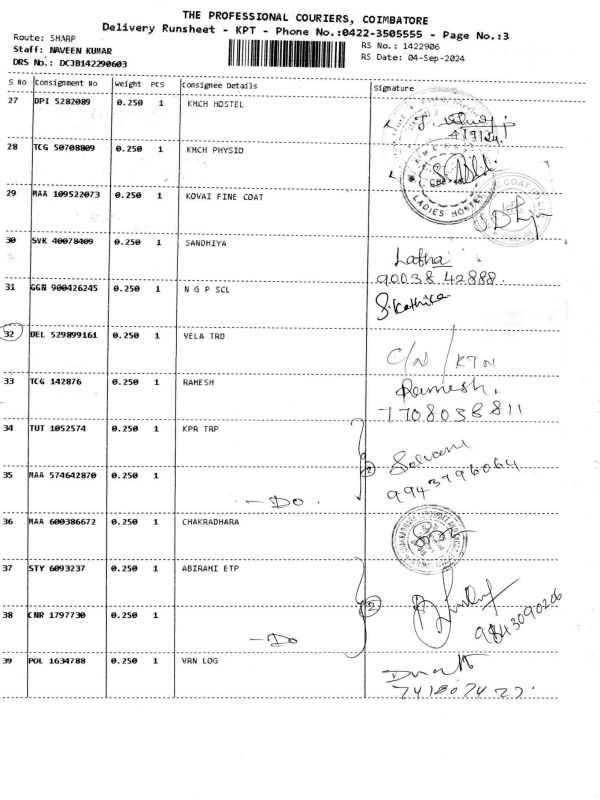 THE PROFESSIONAL COURIERS, COIMBATORE
Delivery Runsheet - KPT - Phone No.:0422-3505555 - Page No.:3
Route: SHARP
RS No.: 1422906
Staff: NAVEEN KUMAR
RS Date: 04-Sep-2024
DRS No.: DCJB142290603
S No Consignment No Weight PCS Consignee Details Signature
27 DPI 5282089 0.250 1 KMCH HOSTEL
4/9/24
28 TCG 50708809 0.250 1 KMCH PHYSIO
LADIES HOSTEL
29 MAA 109522073 0.250 1 KOVAI FINE COAT
30 SVK 40078409 0.250 1 SANDHIYA Latha
90038 42888
31 GGN 900426245 0.250 1 N G P SCL S. Karthika
32 DEL 529899161 0.250 1 VELA TRD C/N / KTN
33 TCG 142876 0.250 1 RAMESH Ramesh.
7708038811
34 TUT 1052574 0.250 1 KPR TRP
2 Selvam
9943796064
35 MAA 574642870 0.250 1 - Do
36 MAA 600386672 0.250 1 CHAKRADHARA
37 STY 6093237 0.250 1 ABIRAMI ETP
2
9843090206
38 CNR 1797730 0.250 1 - Do
39 POL 1634788 0.250 1 VRN LOG